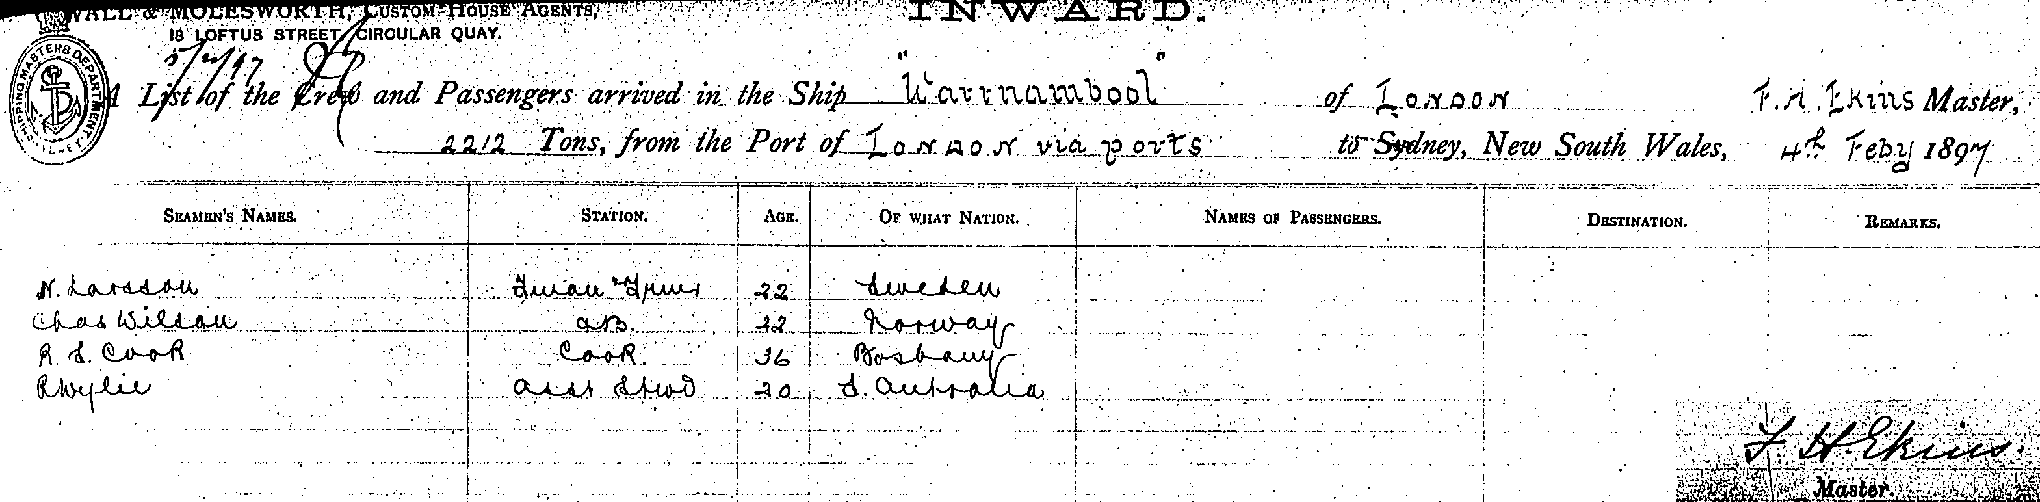 WALL & MOLESWORTH, CUSTOM-HOUSE AGENTS,
INWARD.
18 LOFTUS STREET, CIRCULAR QUAY.
5/2/97
SHIPPING MASTERS DEPARTMENT
A List of the Crew and Passengers arrived in the Ship "Warrnambool" of London F. H. Ekins Master,
2212 Tons, from the Port of London via ports to Sydney, New South Wales, 4th Feby 1897
SEAMEN'S NAMES. STATION. AGE. OF WHAT NATION. NAMES OF PASSENGERS. DESTINATION. REMARKS.
N. Larsson 22 Sweden
Chas Wilson AB. 22 Norway
R. S. Cook Cook 36
R Wylie Asst Stwd 20 S. Australia
F. H. Ekins.
Master.